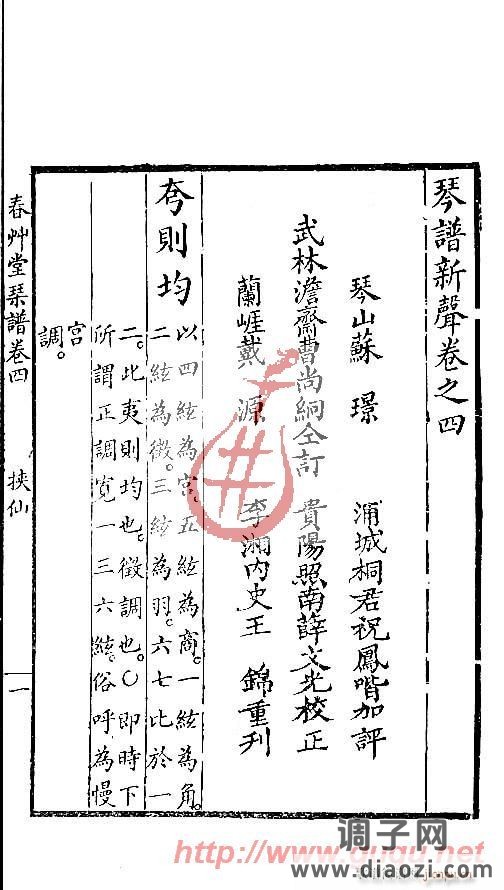 琴譜新聲卷之四
琴山蘇 璟 浦城桐君祝鳳喈加評
武林澹齋曹尚絅仝訂 貴陽照南薛文光校正
蘭崖戴 源 李湘內史王 錦重刋
夷則均
以四絃為宮。五絃為商。一絃為角。
二絃為徵。三絃為羽。六七比於一
二。此夷則均也。徵調也。〇即時下
所謂正調寬一三六絃。俗呼為慢
宮
調。
春艸堂琴譜卷四 挾仙 一
http://www.guqu.net
调子网
www.diaozi.com